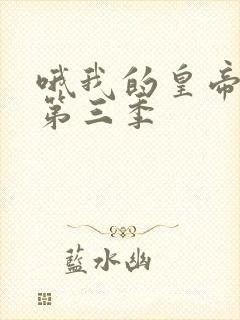 哦我的皇帝
第三季
藍水幽